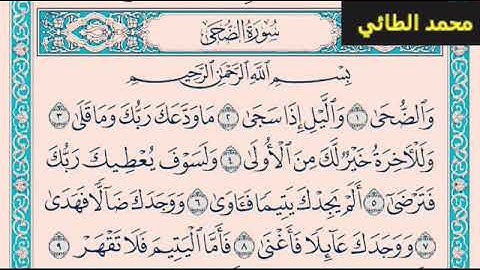 محمد الطائي
سُورَةُ الضُّحَىٰ
بِسْمِ اللَّهِ الرَّحْمَٰنِ الرَّحِيمِ
وَالضُّحَىٰ ١ وَاللَّيْلِ إِذَا سَجَىٰ ٢ مَا وَدَّعَكَ رَبُّكَ وَمَا قَلَىٰ ٣
وَلَلْآخِرَةُ خَيْرٌ لَّكَ مِنَ الْأُولَىٰ ٤ وَلَسَوْفَ يُعْطِيكَ رَبُّكَ
فَتَرْضَىٰ ٥ أَلَمْ يَجِدْكَ يَتِيمًا فَآوَىٰ ٦ وَوَجَدَكَ ضَالًّا فَهَدَىٰ
٧ وَوَجَدَكَ عَائِلًا فَأَغْنَىٰ ٨ فَأَمَّا الْيَتِيمَ فَلَا تَقْهَرْ ٩